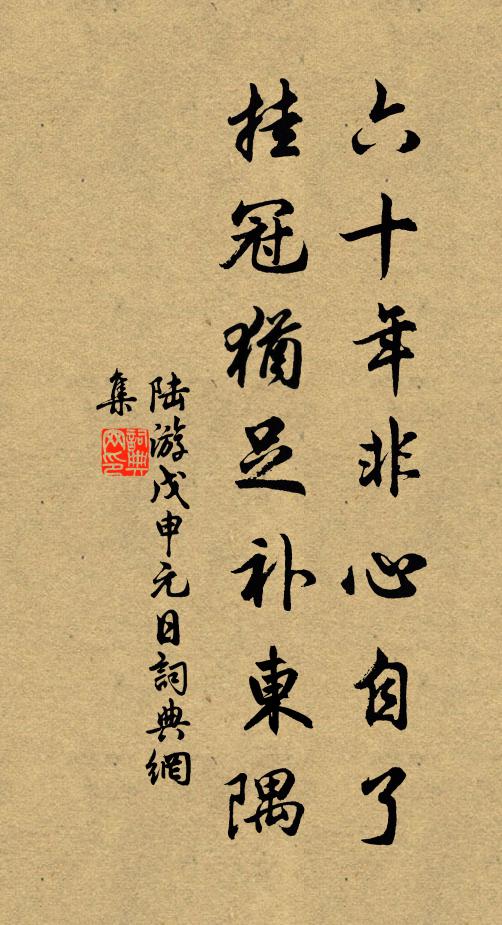 六十年非心自了
挂冠猶足补東隅
陆游戊申元日詞典網
集
詞典网印